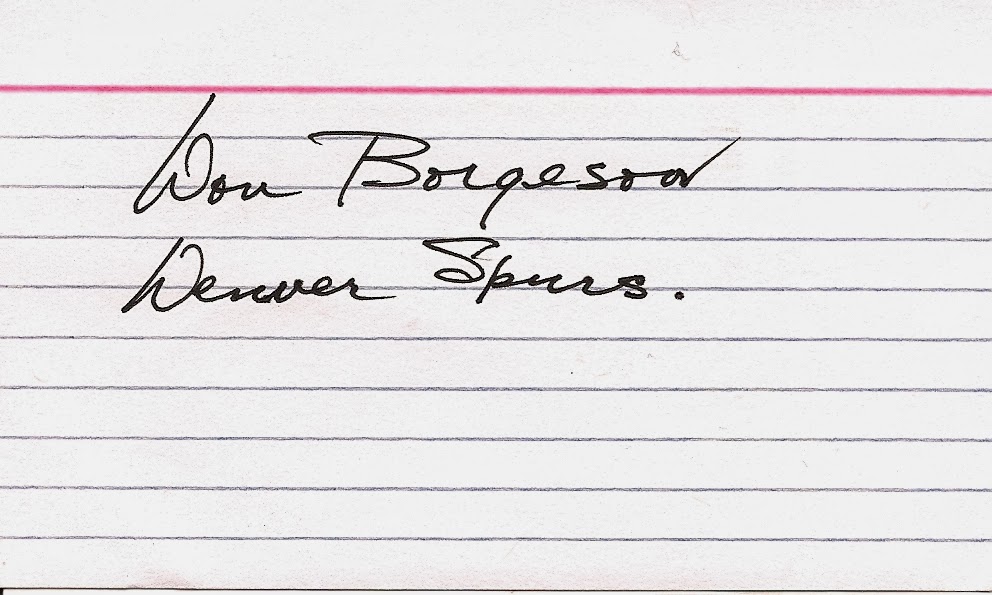 Don Borgeson
Denver Spurs.